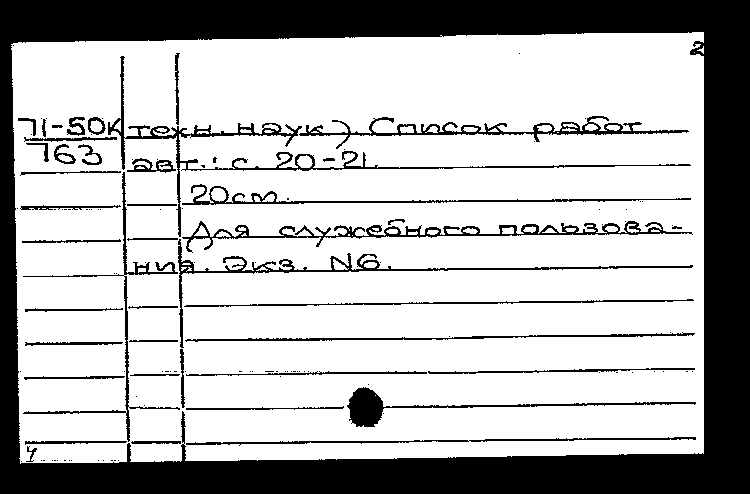 2
71-50К техн. наук). Список работ
763 авт.: с. 20-21.
20см.
Для служебного пользова-
ния. Экз. N6.
4